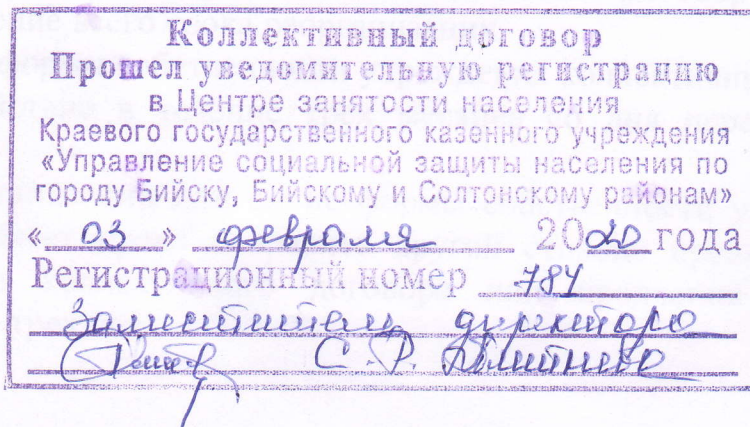 Коллективный договор
Прошел уведомительную регистрацию
в Центре занятости населения
Краевого государственного казенного учреждения
«Управление социальной защиты населения по
городу Бийску, Бийскому и Солтонскому районам»
«03» февраля 2020 года
Регистрационный номер 784
Заместитель директора
С.Р.